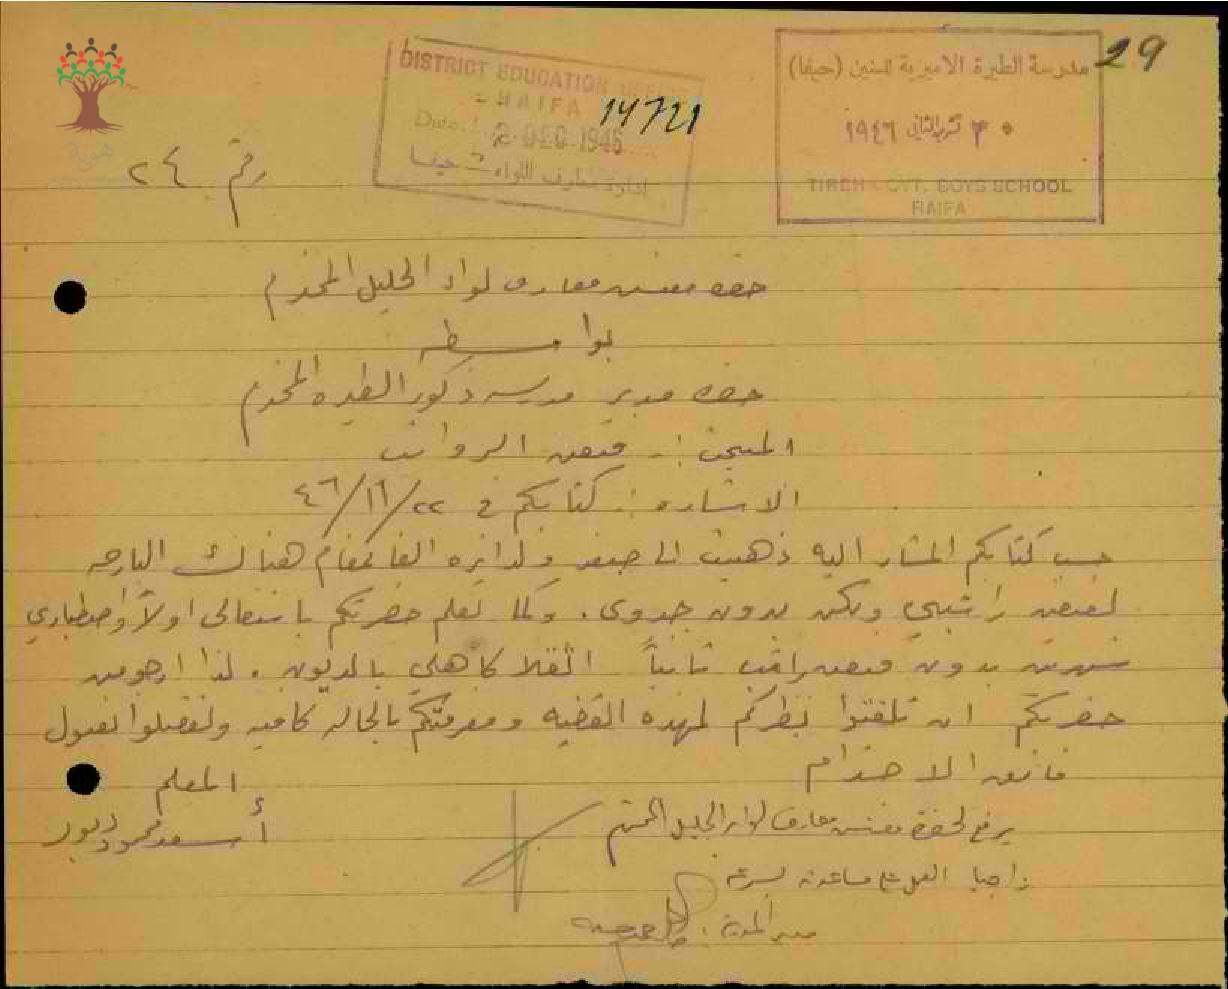 29
مدرسة الطيرة الاميرية للبنين (حيفا)
٣٠ تشرين الثاني ١٩٤٦
TIREH GOVT. BOYS SCHOOL
HAIFA
DISTRICT EDUCATION OFFICE
HAIFA
14721
Date 2 DEC 1946
ادارة معارف اللواء حيفا
هوية
رقم ٢٤
حضرة مفتش معارف لواء الجليل المحترم
بواسطة
حضرة مدير مدرسة ذكور الطيره المحترم
المبحث :- قبض الرواتب
الاشاره : كتابكم في ٢٢/١١/٤٦
حسب كتابكم المشار اليه ذهبت الى صفد ولدائره القائمقام هناك البارحه
لقبض راتبي ولكن بدون جدوى . وكما تعلم حضرتكم بانتقالي اولاً واصطباري
شهرين بدون قبض راتب ثانياً اثقلا كاهلي بالديون . لذا ارجو من
حضرتكم ان تلفتوا نظركم لهذه القضيه ومعرفتكم بالحاله كافيه وتفضلوا بقبول
فائق الاحترام
المعلم
أسعد محمود
يرفع لحضرة مفتش معارف لواء الجليل المحترم
راجيا العمل على مساعدته بسرعة
مدير المدرسة